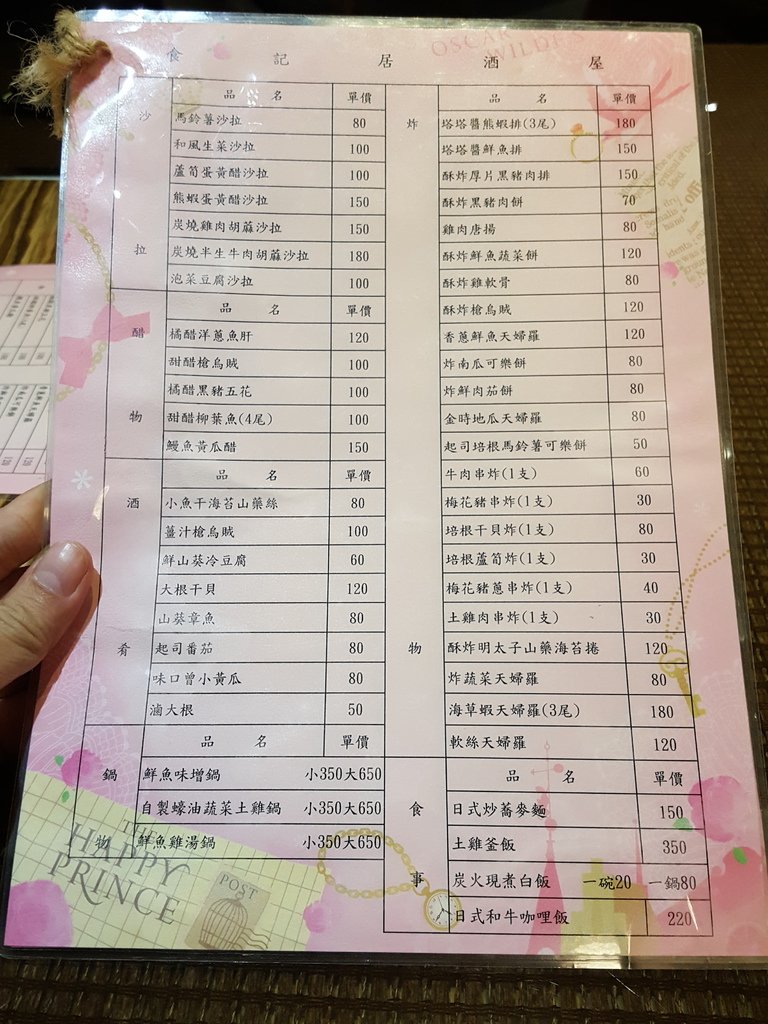 OSCAR WILDE'S
食記居酒屋
沙拉
品名 單價
馬鈴薯沙拉 80
和風生菜沙拉 100
蘆筍蛋黃醋沙拉 100
熊蝦蛋黃醋沙拉 150
炭燒雞肉胡蔴沙拉 150
炭燒半生牛肉胡蔴沙拉 180
泡菜豆腐沙拉 100
醋物
品名 單價
橘醋洋蔥魚肝 120
甜醋槍烏賊 100
橘醋黑豬五花 100
甜醋柳葉魚(4尾) 100
鰻魚黃瓜醋 150
酒肴
品名 單價
小魚干海苔山藥絲 80
薑汁槍烏賊 100
鮮山葵冷豆腐 60
大根干貝 120
山葵章魚 80
起司番茄 80
味口曾小黃瓜 80
滷大根 50
鍋物
品名 單價
鮮魚味增鍋 小350大650
自製蠔油蔬菜土雞鍋 小350大650
鮮魚雞湯鍋 小350大650
炸物
品名 單價
塔塔醬熊蝦排(3尾) 180
塔塔醬鮮魚排 150
酥炸厚片黑豬肉排 150
酥炸黑豬肉餅 70
雞肉唐揚 80
酥炸鮮魚蔬菜餅 120
酥炸雞軟骨 80
酥炸槍烏賊 120
香蔥鮮魚天婦羅 120
炸南瓜可樂餅 80
炸鮮肉茄餅 80
金時地瓜天婦羅 80
起司培根馬鈴薯可樂餅 50
牛肉串炸(1支) 60
梅花豬串炸(1支) 30
培根干貝炸(1支) 80
培根蘆筍炸(1支) 30
梅花豬蔥串炸(1支) 40
土雞肉串炸(1支) 30
酥炸明太子山藥海苔捲 120
炸蔬菜天婦羅 80
海草蝦天婦羅(3尾) 180
軟絲天婦羅 120
食事
品名 單價
日式炒蕎麥麵 150
土雞釜飯 350
炭火現煮白飯 一碗20 一鍋80
日式和牛咖哩飯 220
THE
HAPPY
PRINCE
POST